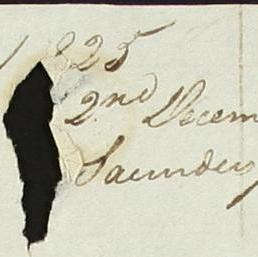 1825
2nd Decem
Saunders